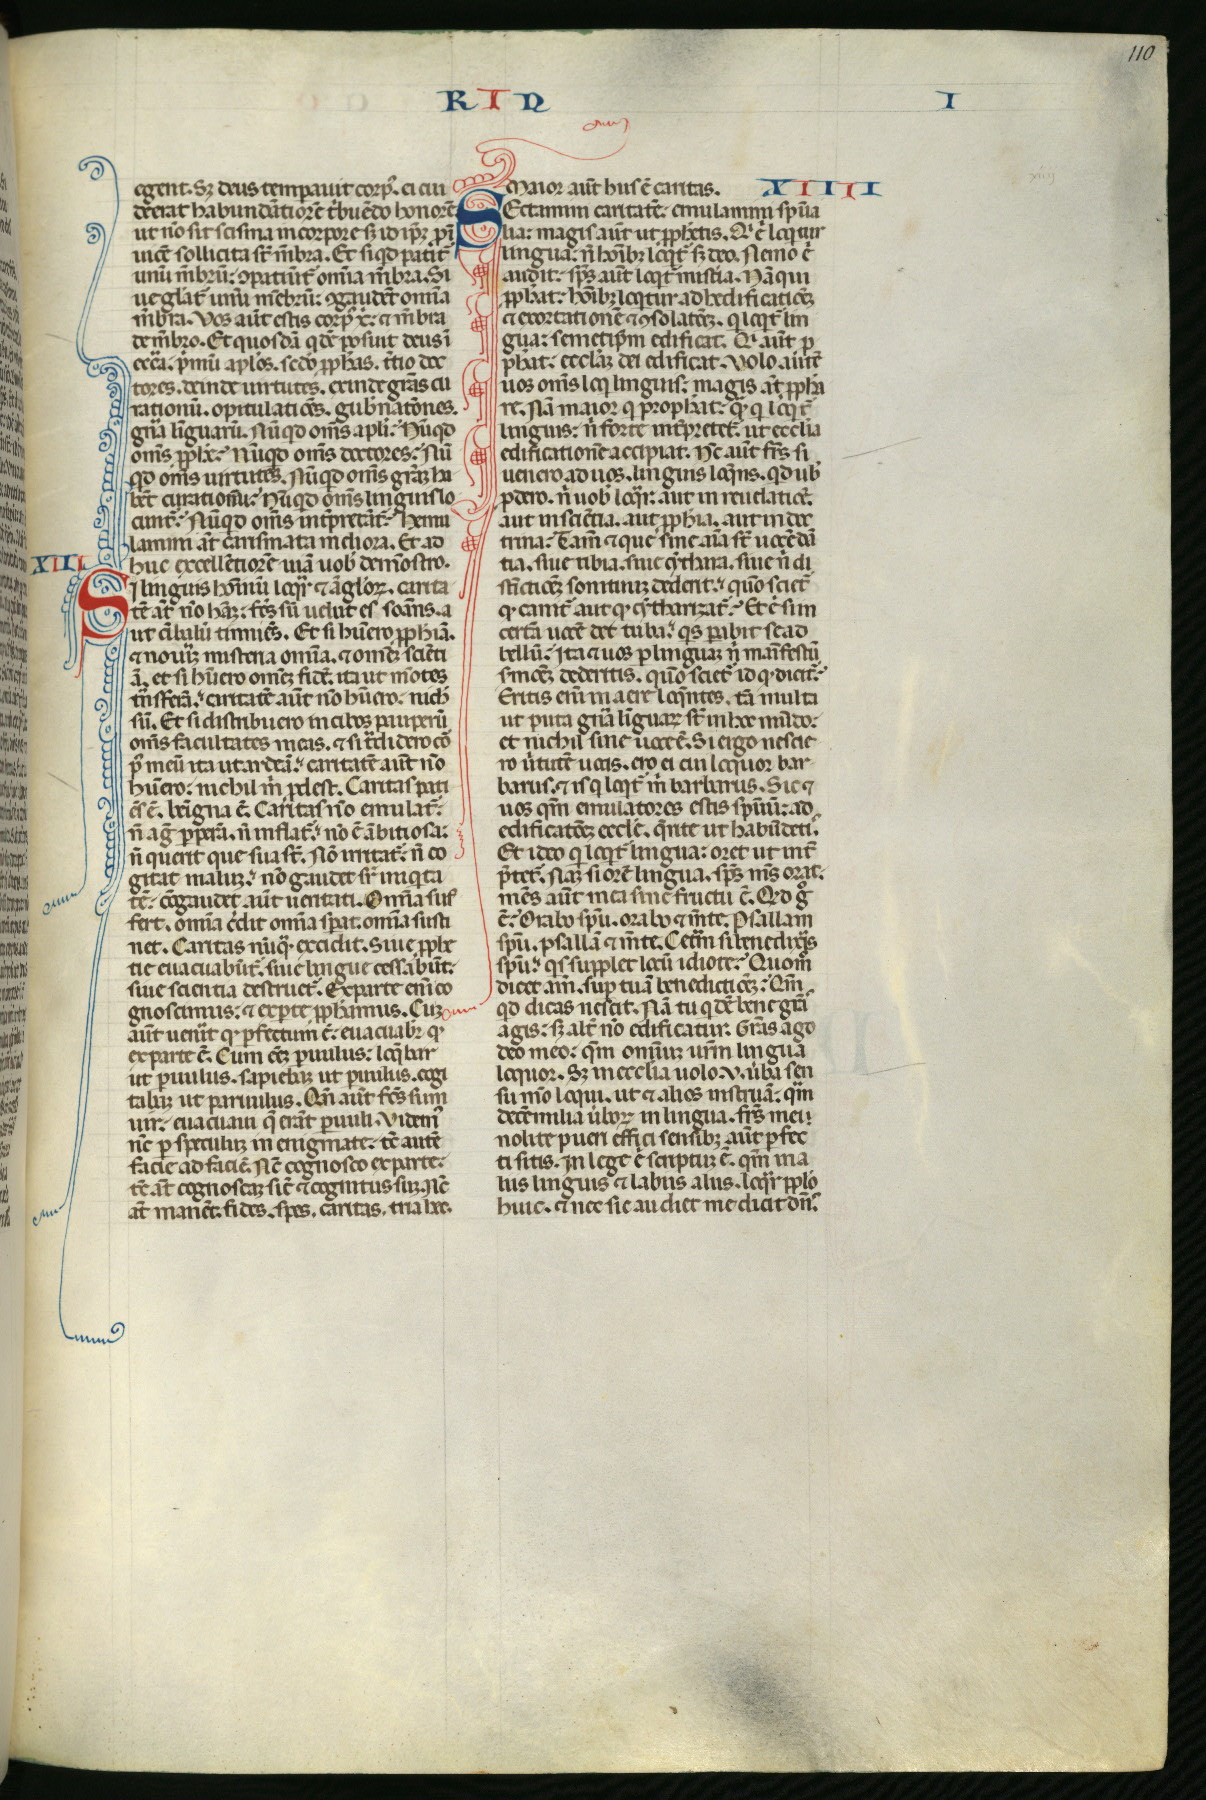 110
RIN I
egent. Sʒ deus temperauit corpꝰ. ei cui
deerat habundātiorē t̾buēdo honorē
ut nō sit scisma in corpore sʒ id ip̄ꝝ pͥ
uicē sollicita sīt mēbra. Et siqͥd patit̾
unū mēbrū: ꝯpatiunt̾ omīa mēbra. Si
ue gl̄at̾ unū mēbrū: ꝯgaudēt omīa
mēbra. Vos aūt estis corpꝰ xͥ: ⁊ mēbra
de mēbro. Et quosdā qͥdē posuit deus ī
ecc̄ia. pͥmū apl̄os. sc̄do ꝓph̄as. t̾tio doc
tores. deinde uirtutes. exinde gr̄as cu
rationū. opitulatiōēs. gub̾natiōnes.
gn̄a līguarū. Nūqͥd om̄s apl̄i: Nūqͥd
om̄s ꝓph̄e: Nūqͥd om̄s doctores: Nū
qͥd om̄s uirtutes. Nūqͥd om̄s gr̄aʒ ha
bēt curationū: Nūqͥd om̄s linguis lo
cunt̾: Nūqͥd om̄s int̾pretāt̾: Hemu
lamini aūt carismata meliora. Et ad
huc excellētiorē uiā uob̾ demōstro.
XIII
SI linguis hoīnū loqͣr ⁊ āgloꝝ. carita
tē aūt nō haʒ: fc̄s sū uelut es soāns. a
ut cībalū tinniēs. Et si hūero ꝓphīā.
⁊ nouʒ misteria omīa. ⁊ om̄eʒ sciēti
ā. et si hūero om̄eʒ fidē. ita ut mōtes
tͣnsferā: caritatē aūt nō hūero: nich̾
sū. Et si distribuero in cibos paup̄eꝝ
om̄s facultates meas. ⁊ si tͣdidero co
rpꝰ meū ita ut ardeā: caritatē aūt nō
hūero: nichil m̄ pͥdest. Caritas pati
ēs ē. benigna ē. Caritas nō emulat̾:
n̄ agͥt ꝑperā. n̄ inflat̾: nō ē ābitiosa:
n̄ querit que sua sīt. Nō irritat̾: n̄ co
gitat maluʒ: nō gaudet sr̄ iniqͥta
tē: cōgaudet aūt ueritati. Omīa suf
fert. omīa cͥdit omīa sp̄at. omīa susti
net. Caritas nūqͣ excidit. Siue ꝓph̄e
tie euacuabūt̾. siue lingue cessabūt:
siue scientia destruet̾. Ex parte enī co
gnoscimus: ⁊ ex ꝑte ꝓph̄amus. Cuʒ
aūt uen̾it qͥ ꝑfectum ē: euacuabr̾ qͥ
ex parte ē. Cum eēʒ paruulus: loqͤbar
ut ꝑuulus. sapiebaʒ ut ꝑuulus. cogi
tabaʒ ut paruulus. Qn̄ aūt fc̄s sum
uir: euacuaui qͤ erāt ꝑuuli. Videmꝰ
nc̄ ꝑ speculuʒ in enigmate: tc̄ autē
facie ad faciē. Nc̄ cognosco ex parte:
tc̄ aūt cognoscaʒ sic̄ ⁊ cognitus suʒ. Nc̄
aūt manēt. fides. spes. caritas. tria hec.
Maior aūt hus ē caritas. XIIII
SEctamini caritatē. emulamini spūa
lia: magis aūt ut ꝓphetis. Qͥ ē loqͥtur
lingua: n̄ hoīb̾ loqͥt̾ sʒ deo. Nemo ē
audit: sp̄s aūt loqͥt̾ mistia. Nā qui
ꝓph̄at: hoīb̾ loqͥtur ad hedificatiōeʒ
⁊ exortationē ⁊ ꝯsolatiōeʒ. qͥ loqͥt̾ lin
gua: semetip̄m edificat. Qͥ aūt ꝓ
ph̄at: eccl̄iaʒ dei edificat. Volo autē
uos om̄s loqͥ linguis: magis aūt ꝓpha
re. Nā maior qͥ prophat: qͣ qͥ loqͥt̾
linguis: n̄ forte int̾pretet̾. ut eccl̄ia
edificationē accipiat. Nc̄ aūt fr̄s si
uenero ad uos. linguis loqͤns. qͥd uob̾
pͥdero. n̄ uob̾ loqͣr: aut in reuelatiōe
aut in sciētia. aut ꝓph̄ia. aut in doc
trina: Tam̄ ⁊ que sine aīa sīt uocē dā
tia. siue tibia. siue cythara. siue n̄ di
stīctioēʒ sonituuʒ dederit: quō sciet̾
qͥ canit̾ aut qͥ cytharizat̾: Et̾ē si in
certā uocē det tuba: qͥs parabit se ad
bellū: Ita ⁊ uos ꝑ linguaʒ n̄ manifestū
sm̄oēʒ dederitis. quō sciet̾ id qͥ dicit̾:
Eritis enī in aere loqͤntes. tā multa
ut puta gn̄a līguaꝝ sīt in hoc mūdo:
et nichil sine uoce ē. Si ergo nescie
ro u̾tutē uocis. ero ei cui loquor bar-
barus. ⁊ is qͥ loqͥt̾ m̄ barbarus. Sic ⁊
uos qm̄ emulatores estis spūuū: ad
edificatōeʒ eccl̄e. qͣrite ut habūdetis.
Et ideo qͥ loqͥt̾ lingua: oret ut int̾
p̄tet̾. Naʒ si orē lingua. sp̄s m̄s orat.
mēs aūt mea sine fructu ē. Qͥd g̊
ē: Orabo spū. orabo ⁊ m̄te. Psallam
spū. psallā ⁊ m̄te. Cet̾m si benedixͥis
spū: qͥs supplet locū idiote: Quom̄
dicet am̄. sup tuā benedictiōeʒ: Qm̄
qͥd dicas nescit. Nā tu qͥdē bene gr̄as
agis: sʒ alt̾ nō edificatur. Gr̄as ago
deo meo: qm̄ omniuʒ ur̄m lingua
loquor. Sʒ in eccl̄ia uolo .v. u̾ba sen
su m̄o loqui. ut ⁊ alios instruā: qͣm
decē milia u̾boꝝ in lingua. fr̄s mei:
nolite pueri effici sensib̾. aūt ꝑfec
ti sitis. In lege ē scriptuʒ ē. qm̄ in a
liis linguis ⁊ labiis aliis. loqͣr ꝓplo
huic. ⁊ nec sic audiet me dicit dn̄s.